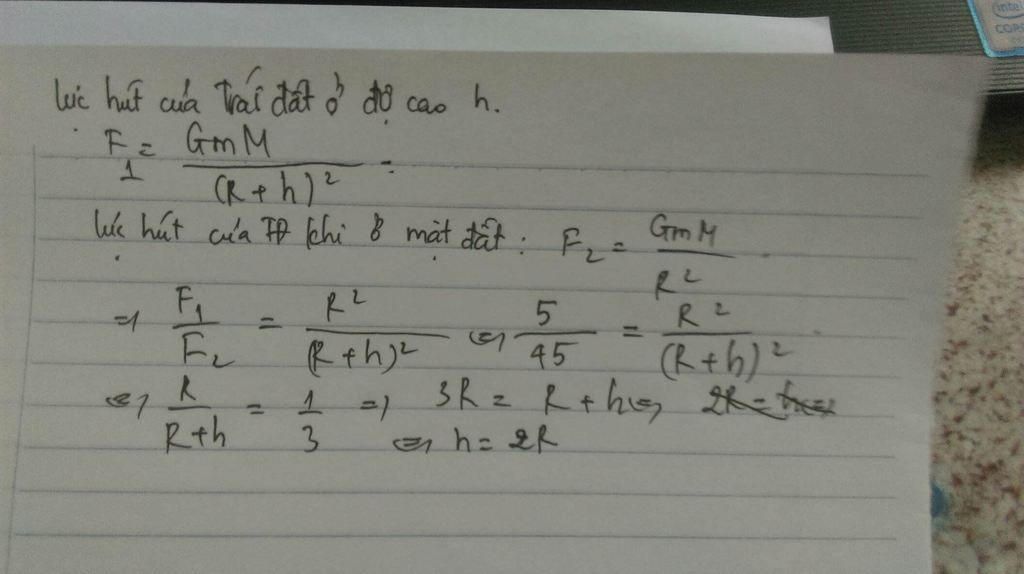 intel
CORE
lực hút của Trái đất ở độ cao h.
F₁ = GmM / (R + h)² =
lực hút của TĐ khi ở mặt đất : F₂ = GmM / R²
=> F₁ / F₂ = R² / (R + h)² <=> 5 / 45 = R² / (R + h)²
<=> R / R+h = 1 / 3 => 3R = R + h <=>
<=> h = 2R